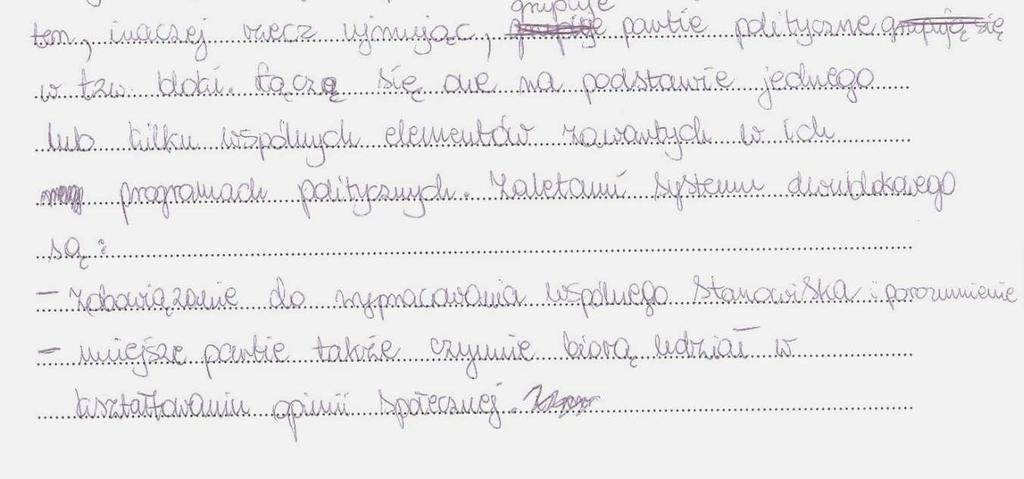 grupuje
tem, inaczej rzecz ujmując, grupuje partie polityczne grupują się
w tzw. bloki. Łączą się one na podstawie jednego
lub kilku wspólnych elementów zawartych w ich
programach politycznych. Zaletami systemu dwublokowego
są:
- zobowiązanie do wypracowania wspólnego stanowiska i porozumienie
- mniejsze partie także czynnie biorą udział w
kształtowaniu opinii społecznej.